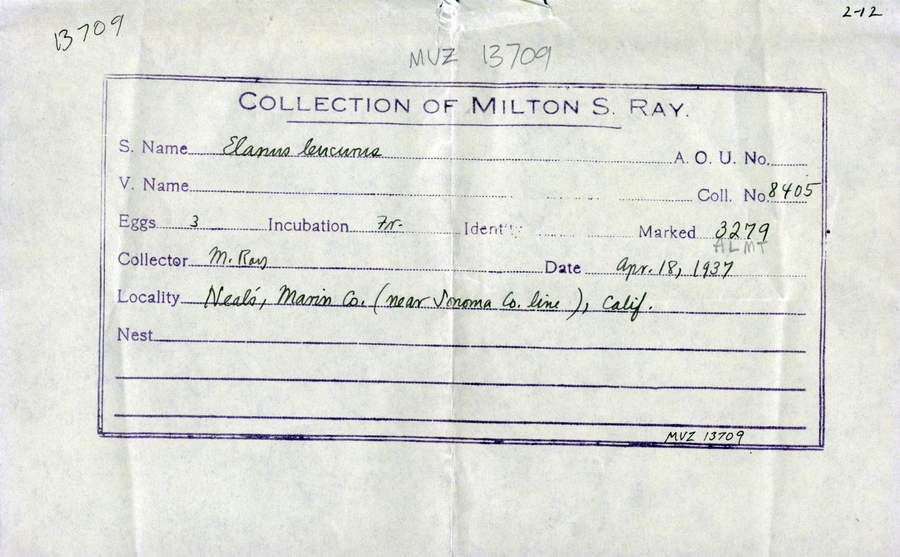 2-12
13709
MVZ 13709
COLLECTION OF MILTON S. RAY.
S. Name Elanus leucurus A. O. U. No.
V. Name Coll. No. 8405
Eggs 3 Incubation Fr. Identity Marked 3279
ALMT
Collector M. Ray Date Apr. 18, 1937
Locality Neal's, Marin Co. (near Sonoma Co. line), Calif.
Nest
MVZ 13709